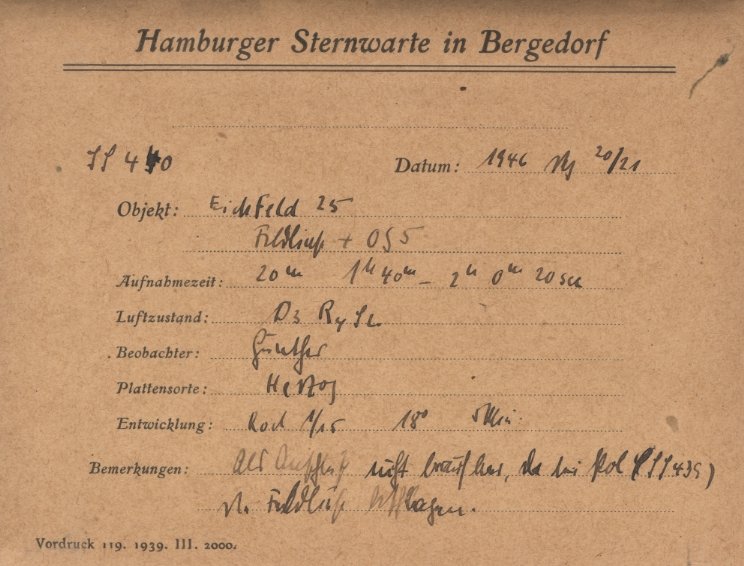 Hamburger Sternwarte in Bergedorf
Datum: 1946 20/21
Objekt: Eichfeld 25
Feldlinse + OG5
Aufnahmezeit: 20m 1h 40m – 2h 0m 20 sec
Luftzustand: D3 R4
Beobachter: Günther
Plattensorte: Herzog
Entwicklung: Rod 1/25 18° 5 Min.
Bemerkungen: Als nicht brauchbar, da bei Pol
die Feldlinse
Vordruck 119. 1939. III. 2000.